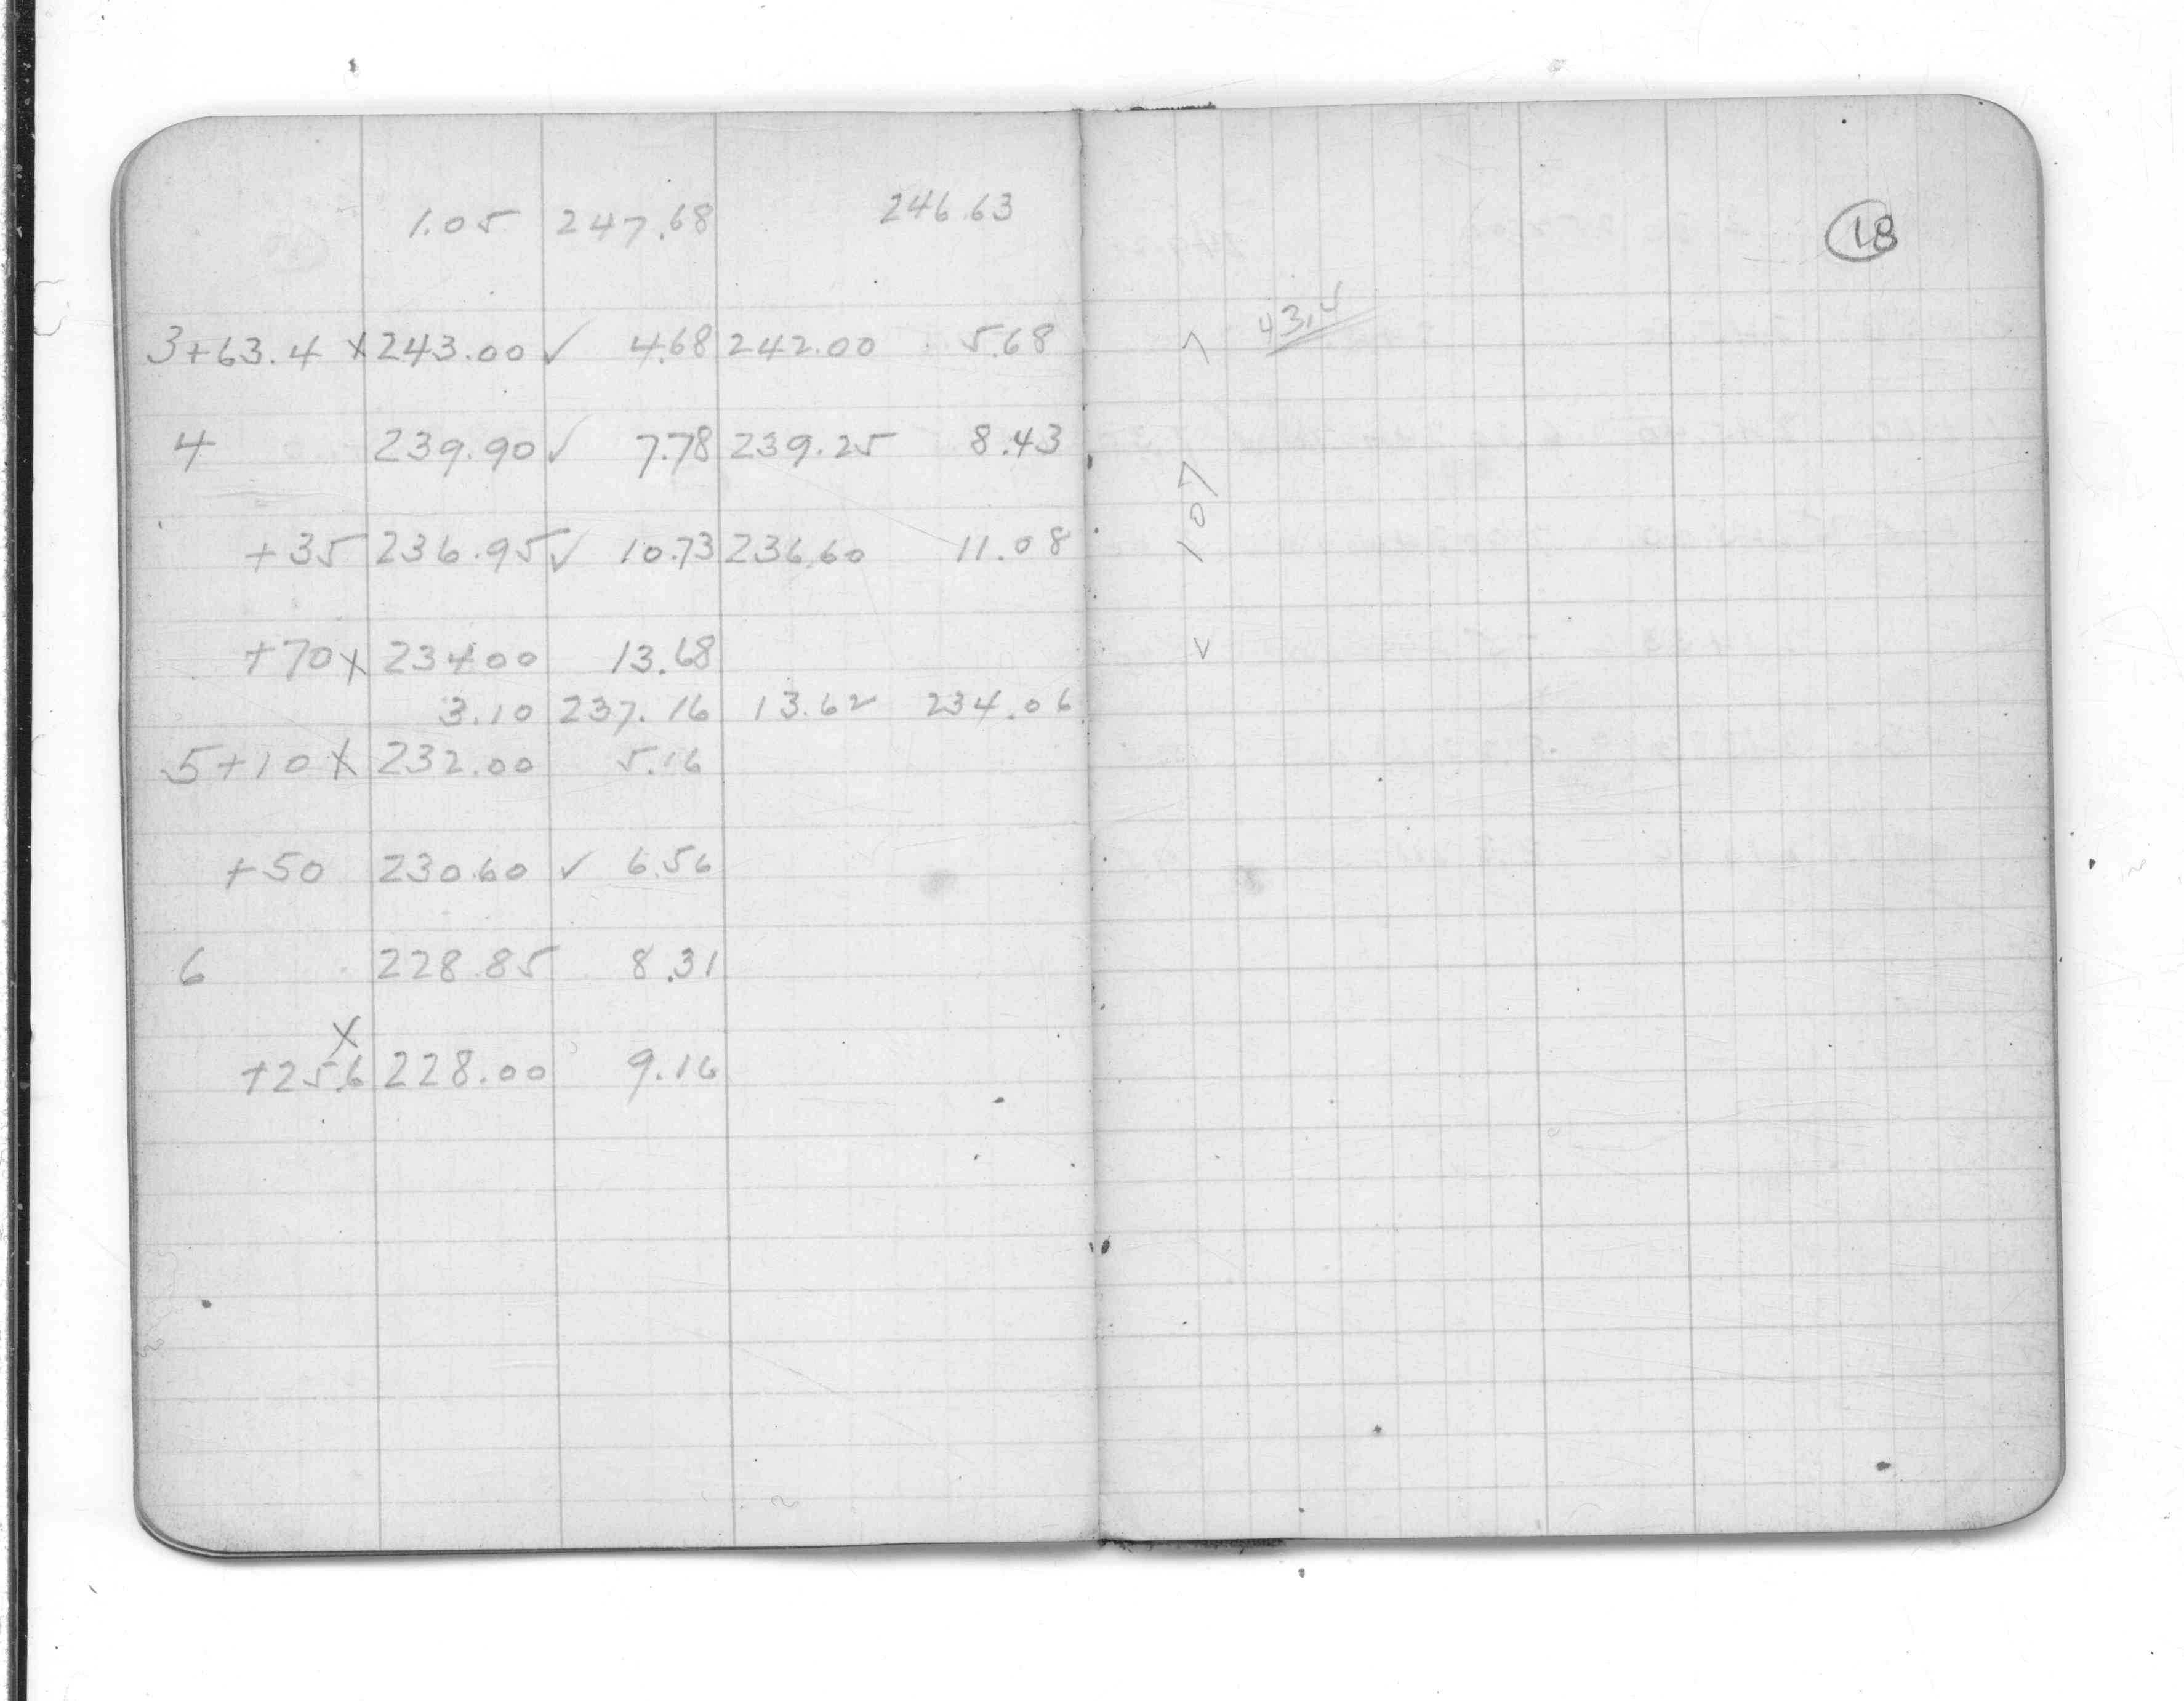 1.05 247.68 246.63
3+63.4 x 243.00 ✓ 4.68 242.00 5.68
4 239.90 ✓ 7.78 239.25 8.43
+35 236.95 ✓ 10.73 236.60 11.08
+70 x 234.00 13.68
3.10 237.16 13.62 234.06
5+10 x 232.00 5.16
+50 230.60 ✓ 6.56
6 228.85 8.31
x
+25.6 228.00 9.16
18
43.4
< 107 >